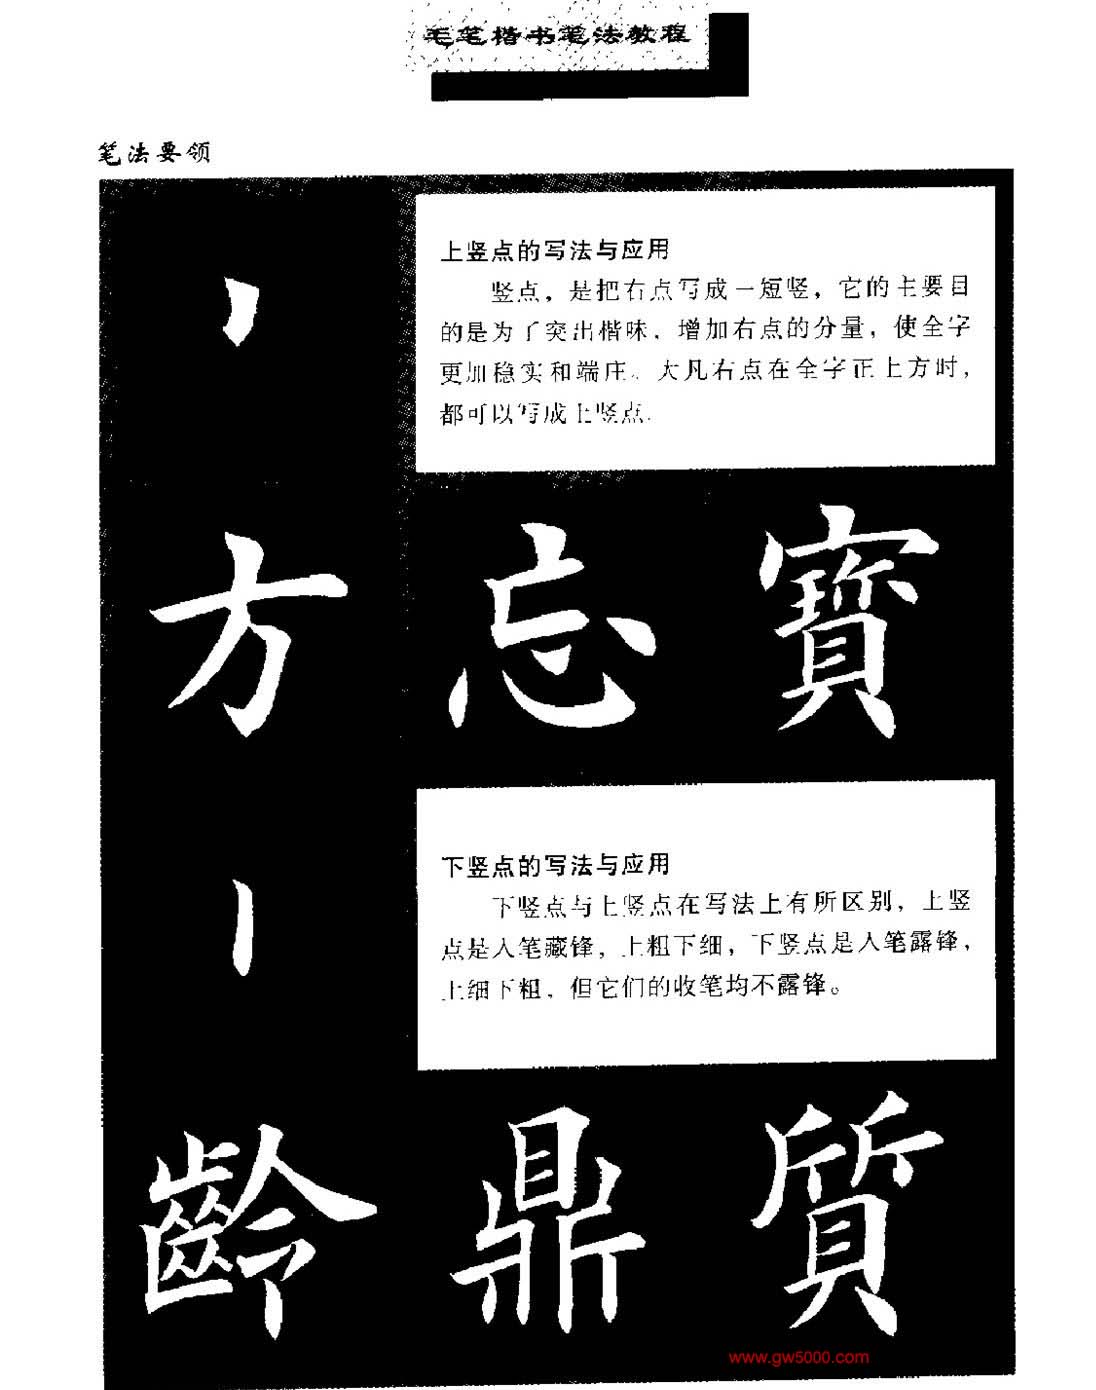 毛笔楷书笔法教程
笔法要领
上竖点的写法与应用
竖点，是把右点写成一短竖，它的主要目
的是为了突出楷味，增加右点的分量，使全字
更加稳实和端庄。大凡右点在全字正上方时，
都可以写成上竖点.
方忘寶
下竖点的写法与应用
下竖点与上竖点在写法上有所区别，上竖
点是入笔藏锋，上粗下细，下竖点是入笔露锋，
上细下粗，但它们的收笔均不露锋。
齡鼎質
www.gw5000.com